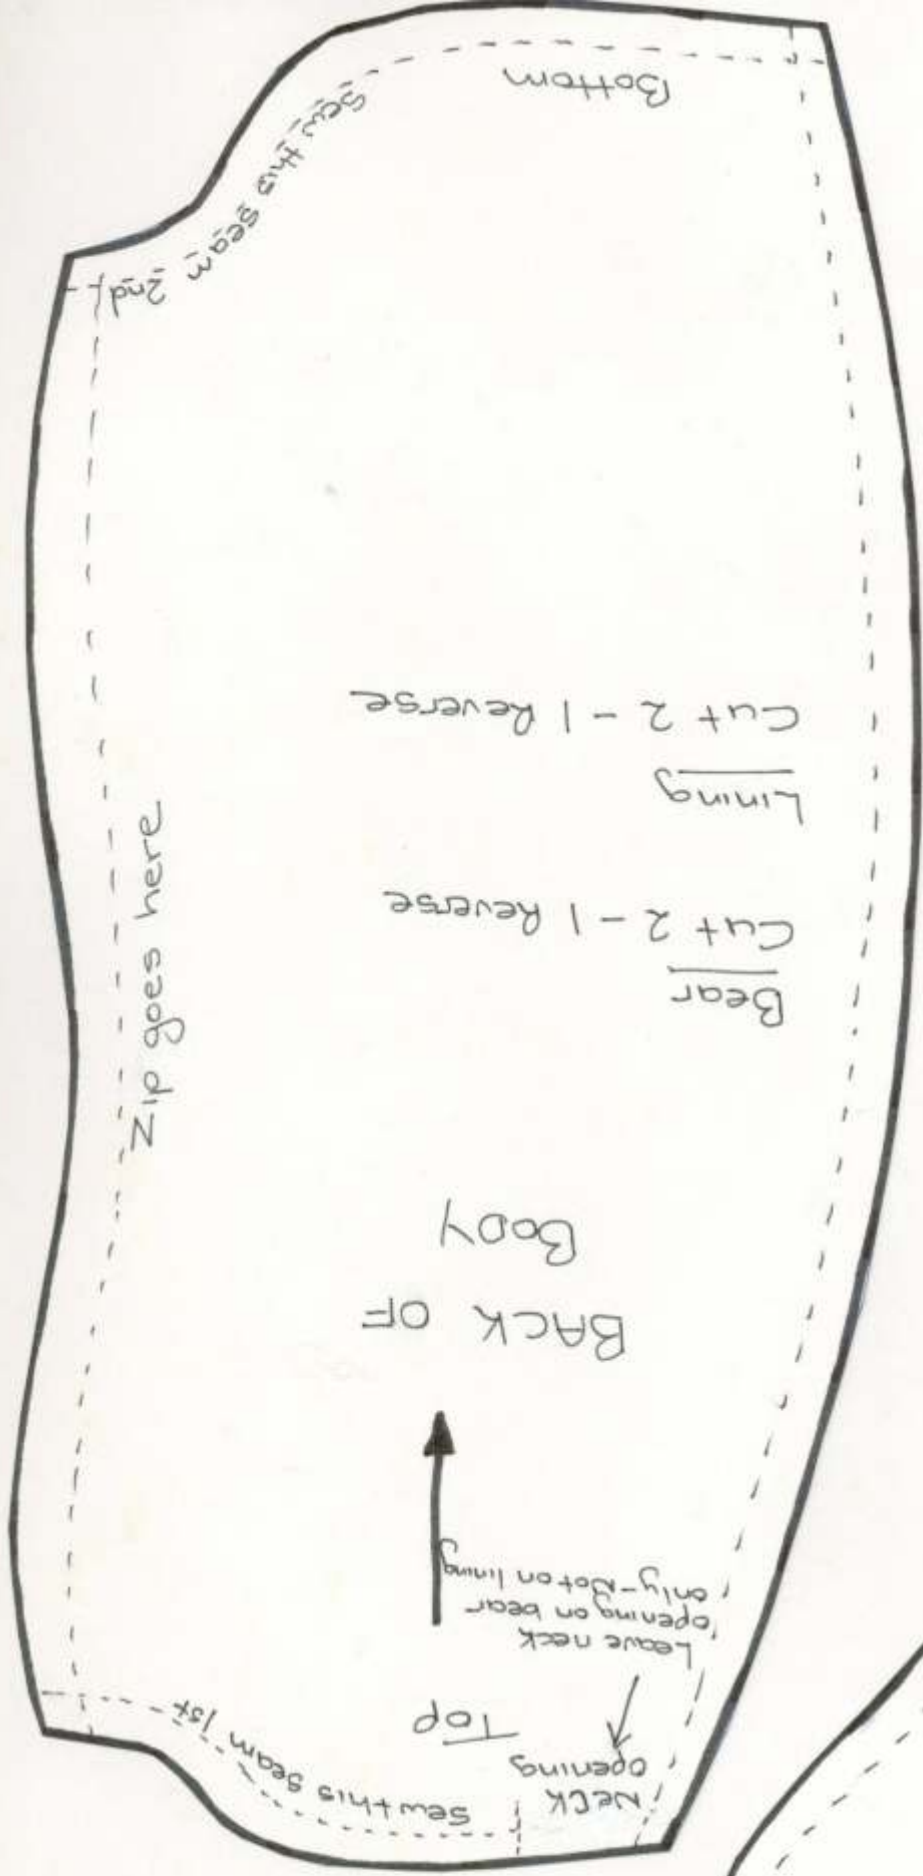 Neck
opening
Sew this seam 1st
Top
Leave neck
opening on bear
only - Not on lining
BACK OF
BODY
Bear
Cut 2 - 1 Reverse
Lining
Cut 2 - 1 Reverse
Zip goes here
Sew this seam 2nd
Bottom